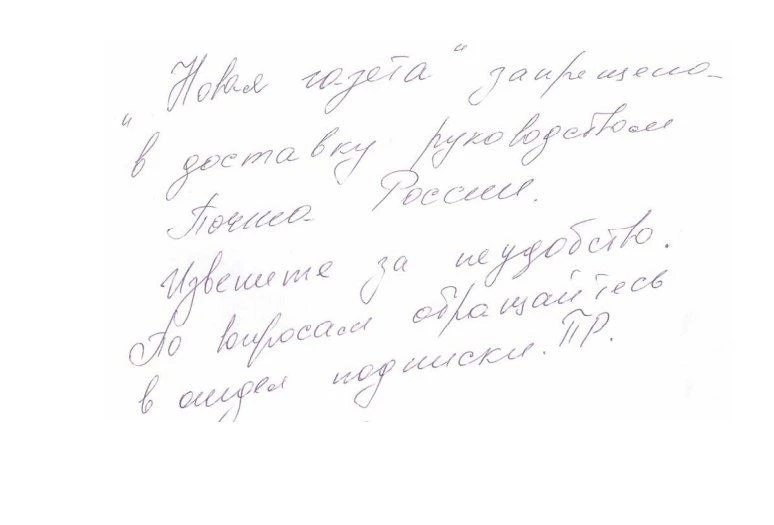 "Новая газета" запрещена
в доставку руководством
Почта России.
Извените за неудобство.
По вопросам обращайтесь
в отдел подписки. ПР.